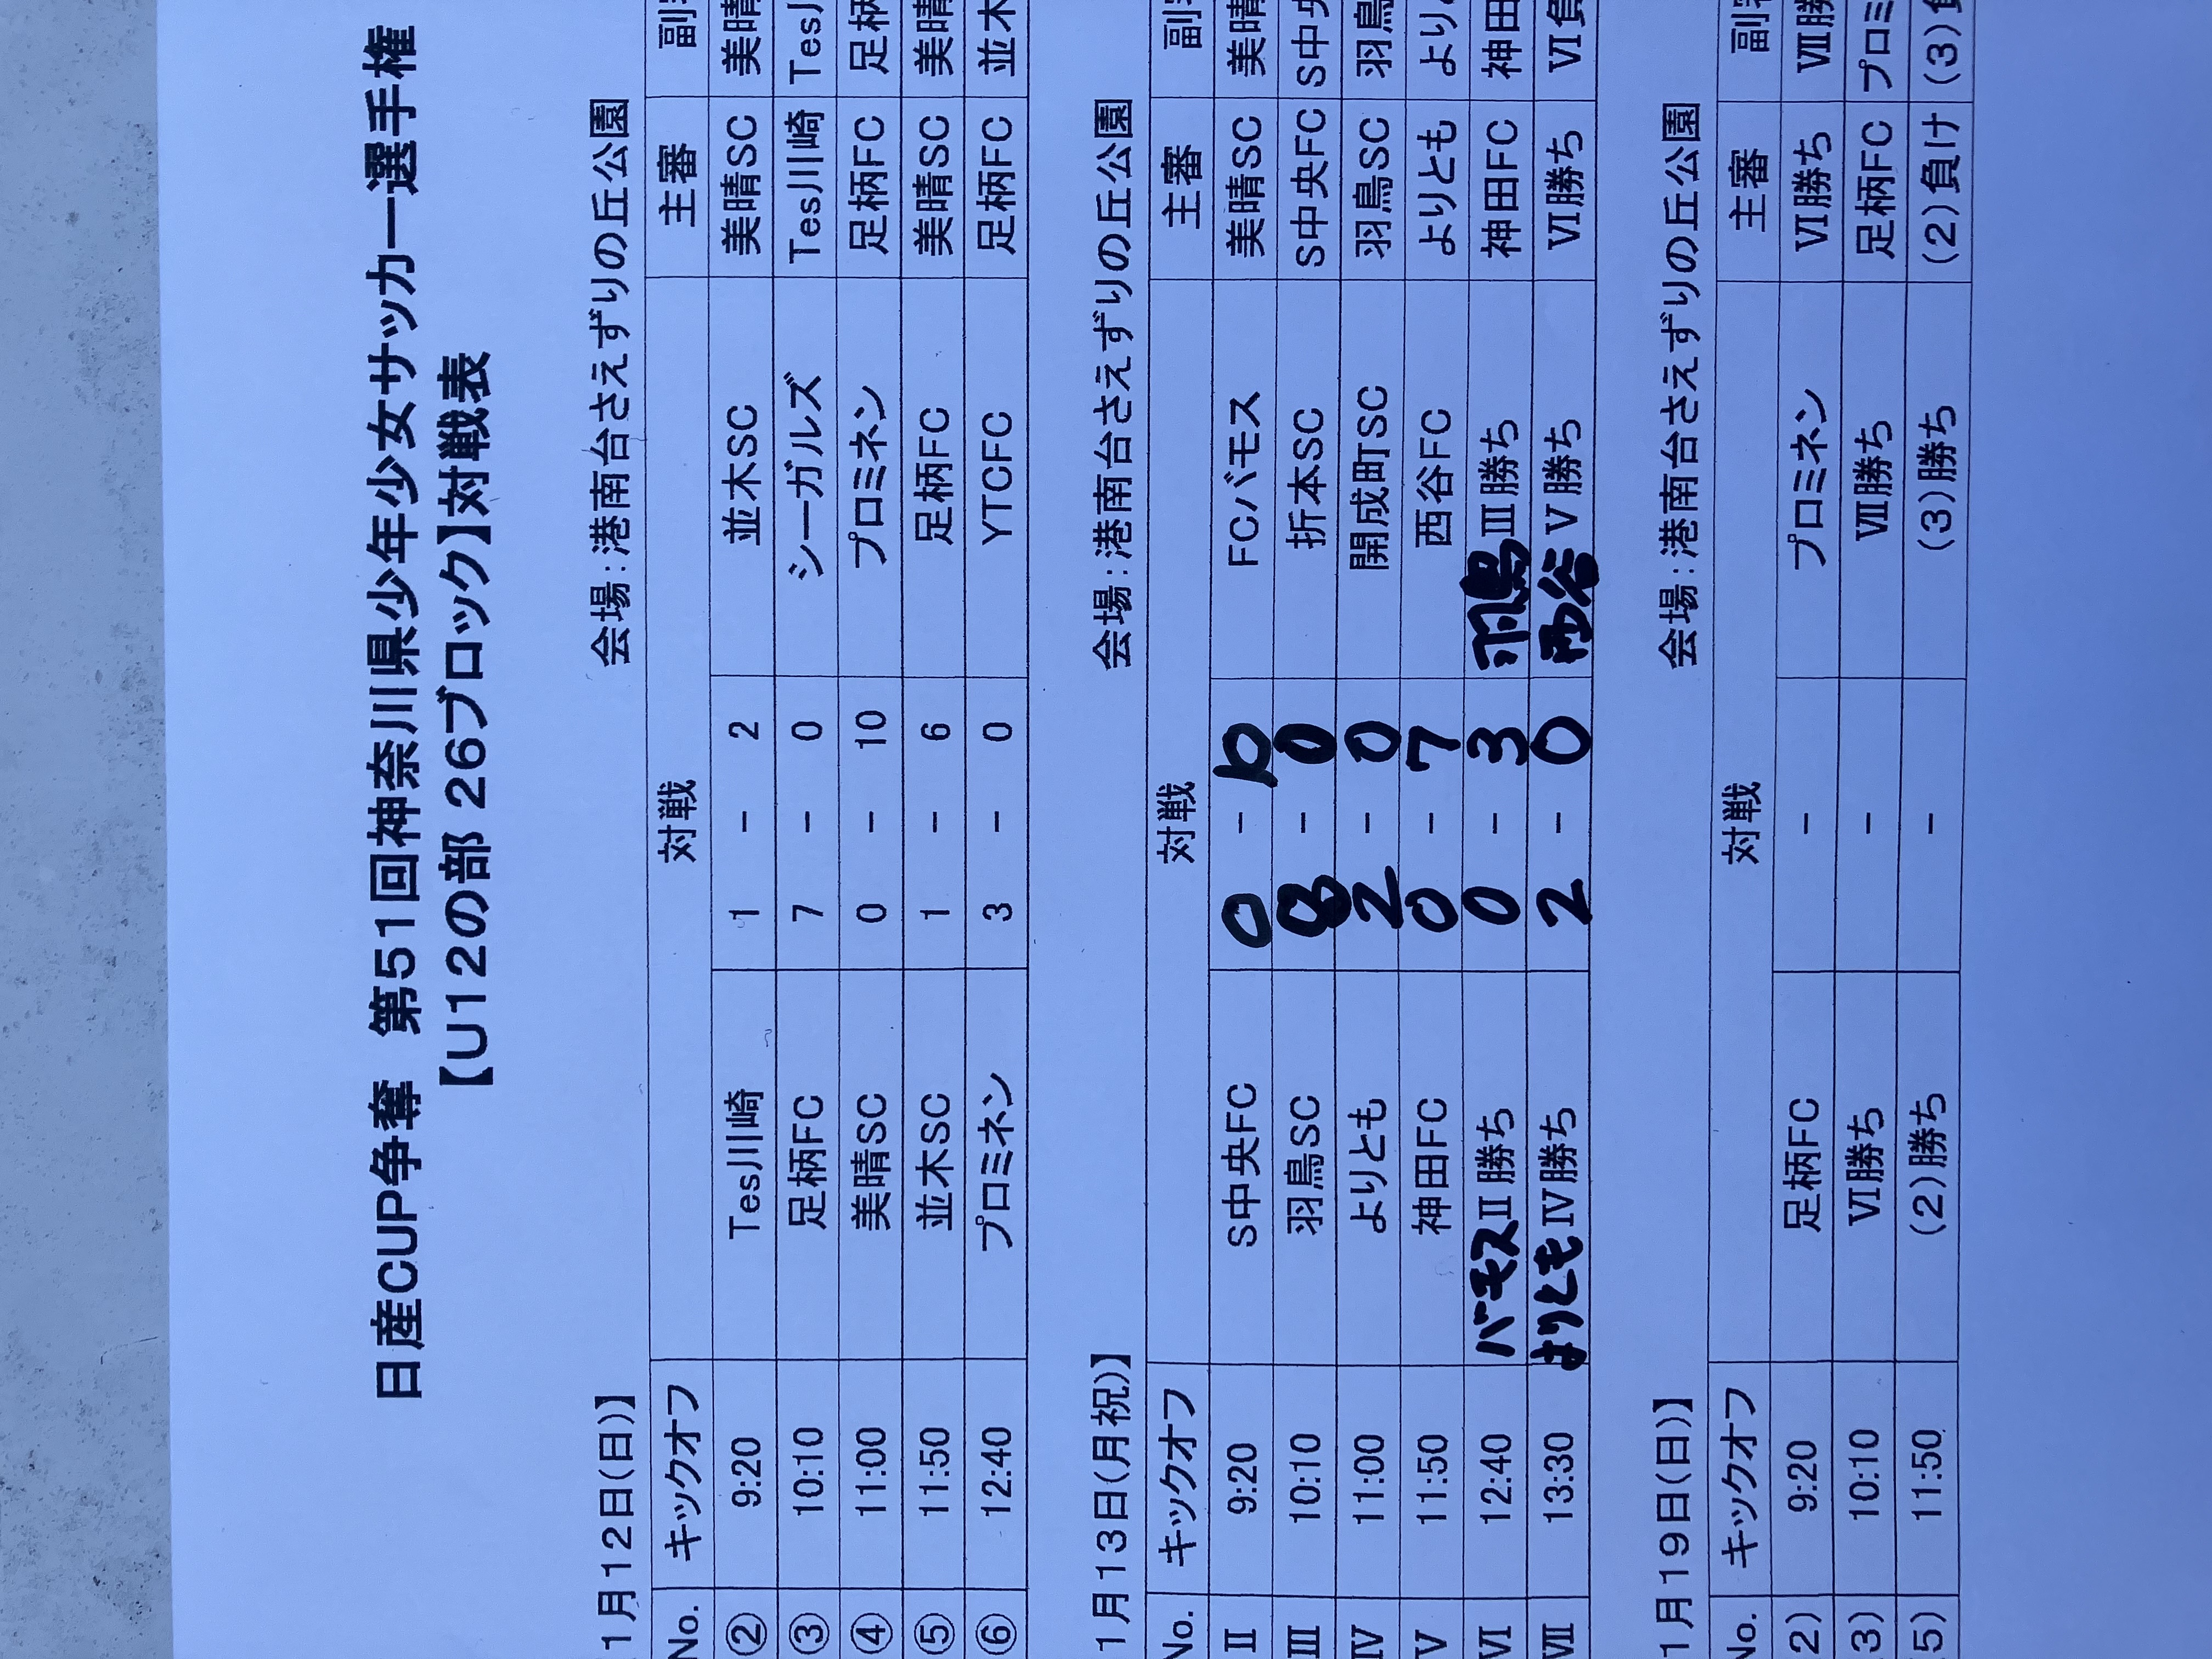 日産CUP争奪 第51回神奈川県少年少女サッカー選手権
【U12の部 26ブロック】対戦表
1月12日(日)】 会場:港南台さえずりの丘公園
No. キックオフ 対戦 主審 副
② 9:20 Tes川崎 1 - 2 並木SC 美晴SC 美晴
③ 10:10 足柄FC 7 - 0 シーガルズ Tes川崎 Tes
④ 11:00 美晴SC 0 - 10 プロミネン 足柄FC 足柄
⑤ 11:50 並木SC 1 - 6 足柄FC 美晴SC 美晴
⑥ 12:40 プロミネン 3 - 0 YTCFC 足柄FC 並木
1月13日(月祝)】 会場:港南台さえずりの丘公園
No. キックオフ 対戦 主審 副
Ⅱ 9:20 S中央FC 0 - 10 FCバモス 美晴SC 美晴
Ⅲ 10:10 羽鳥SC - 0 折本SC S中央FC S中央
Ⅳ 11:00 よりとも 2 - 0 開成町SC 羽鳥SC 羽鳥
Ⅴ 11:50 神田FC 0 - 7 西谷FC よりとも より
Ⅵ 12:40 バモスⅡ勝ち 0 - 3 羽鳥Ⅲ勝ち 神田FC 神田
Ⅶ 13:30 よりともⅣ勝ち 2 - 0 西谷Ⅴ勝ち Ⅵ勝ち Ⅵ負
1月19日(日)】 会場:港南台さえずりの丘公園
No. キックオフ 対戦 主審 副
2) 9:20 足柄FC - プロミネン Ⅵ勝ち Ⅶ勝
3) 10:10 Ⅵ勝ち - Ⅶ勝ち 足柄FC プロミ
5) 11:50 (2)勝ち - (3)勝ち (2)負け (3)負